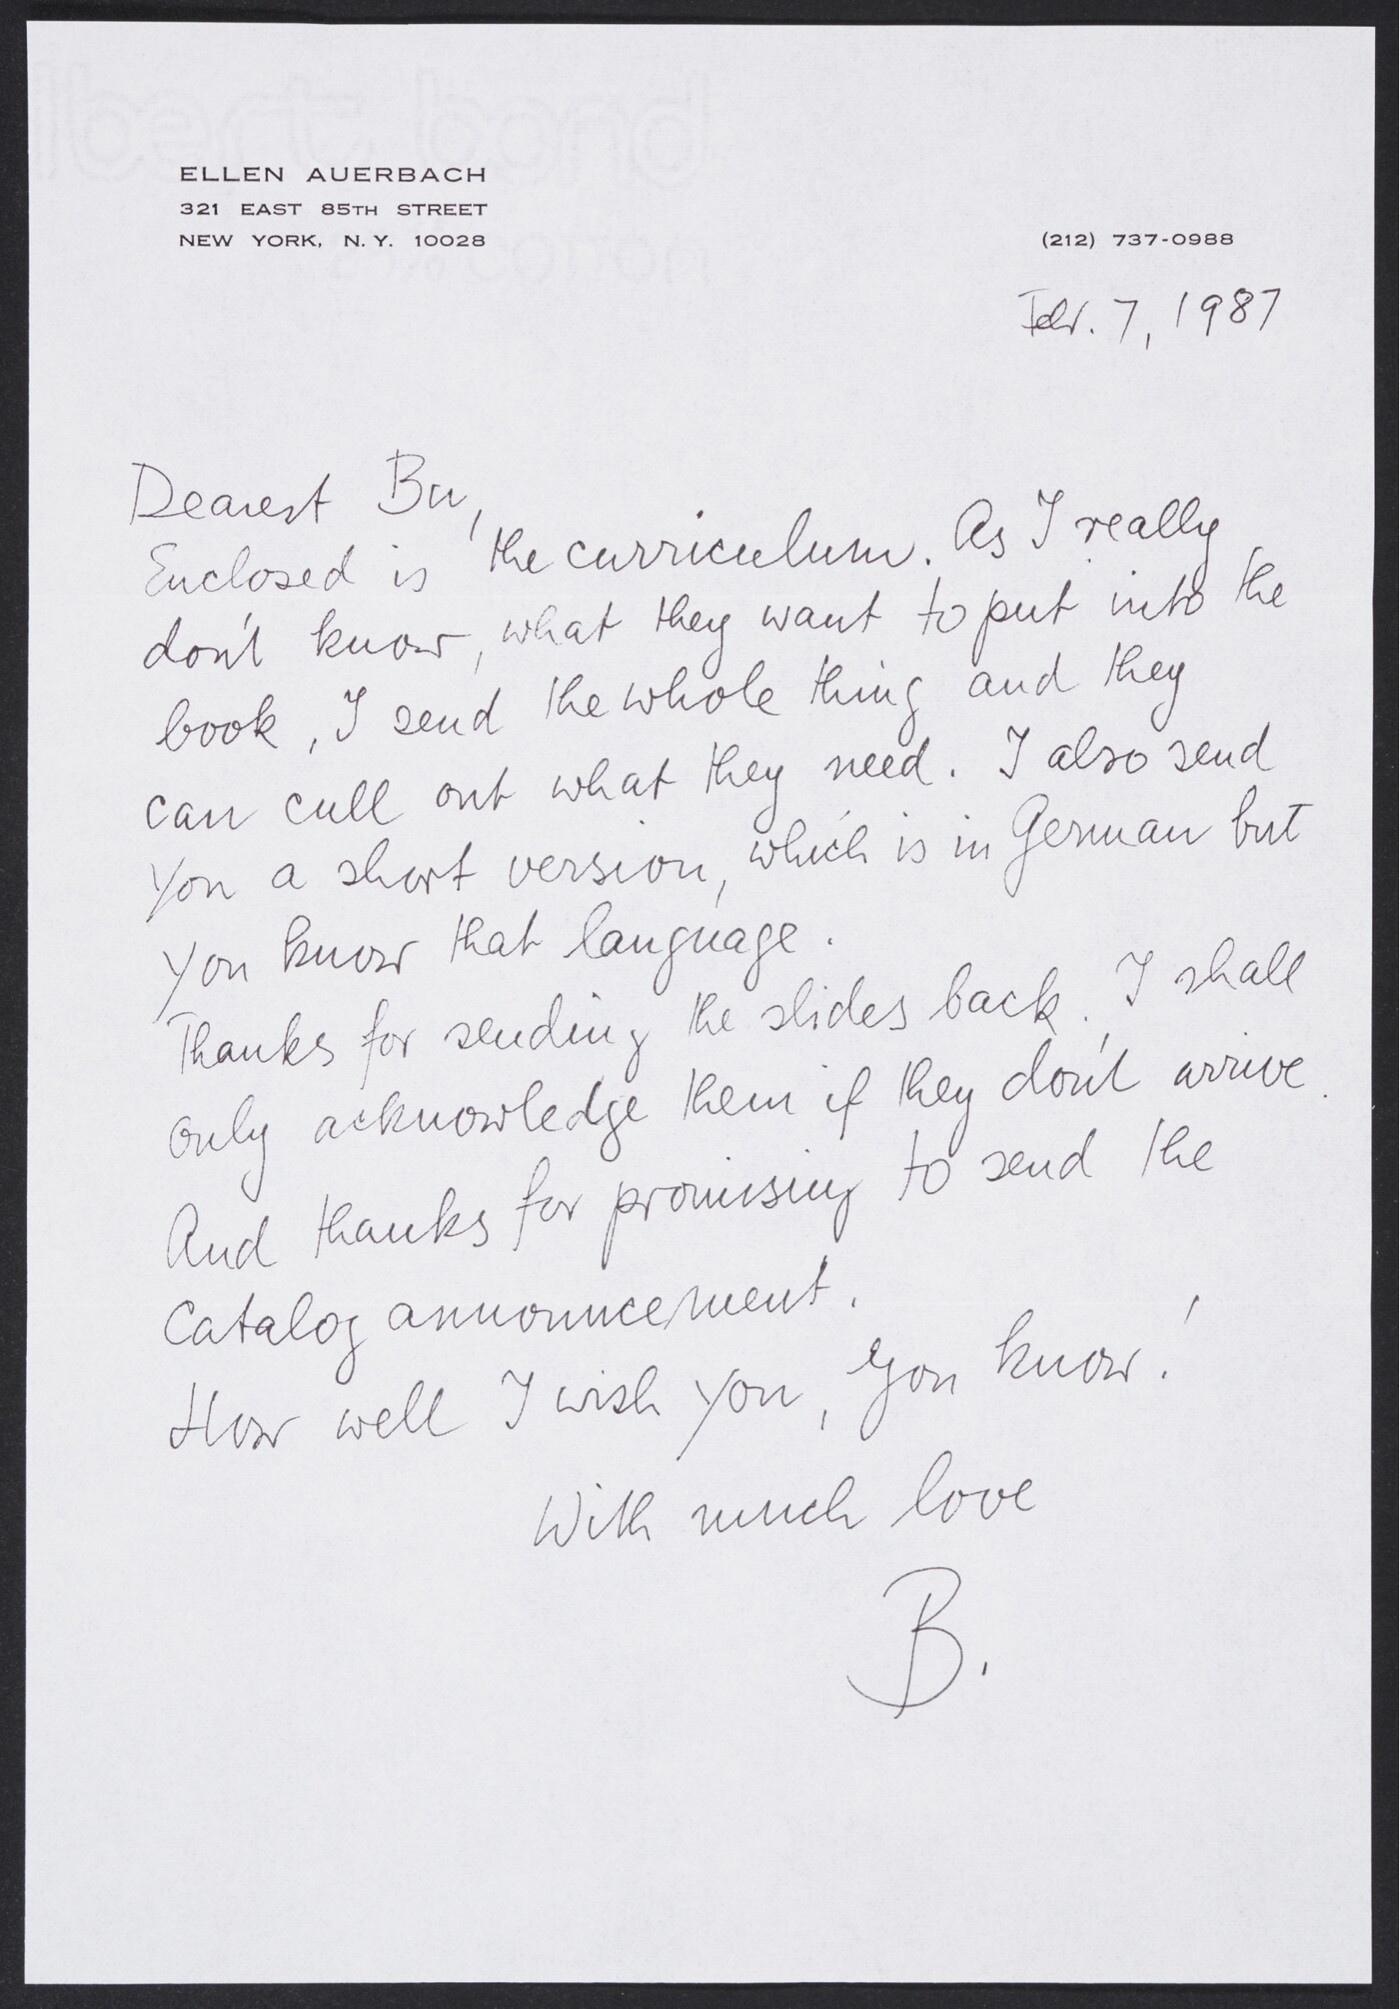 ELLEN AUERBACH
321 EAST 85TH STREET
NEW YORK, N.Y. 10028
(212) 737-0988
Febr. 7, 1987
Dearest Bu,
Enclosed is the curriculum. As I really
don't know, what they want to put into the
book, I send the whole thing and they
can cull out what they need. I also send
you a short version, which is in German but
you know that language.
Thanks for sending the slides back. I shall
only acknowledge them if they don't arrive.
And thanks for promising to send the
Catalog announcement.
How well I wish you, you know!
With much love
B.